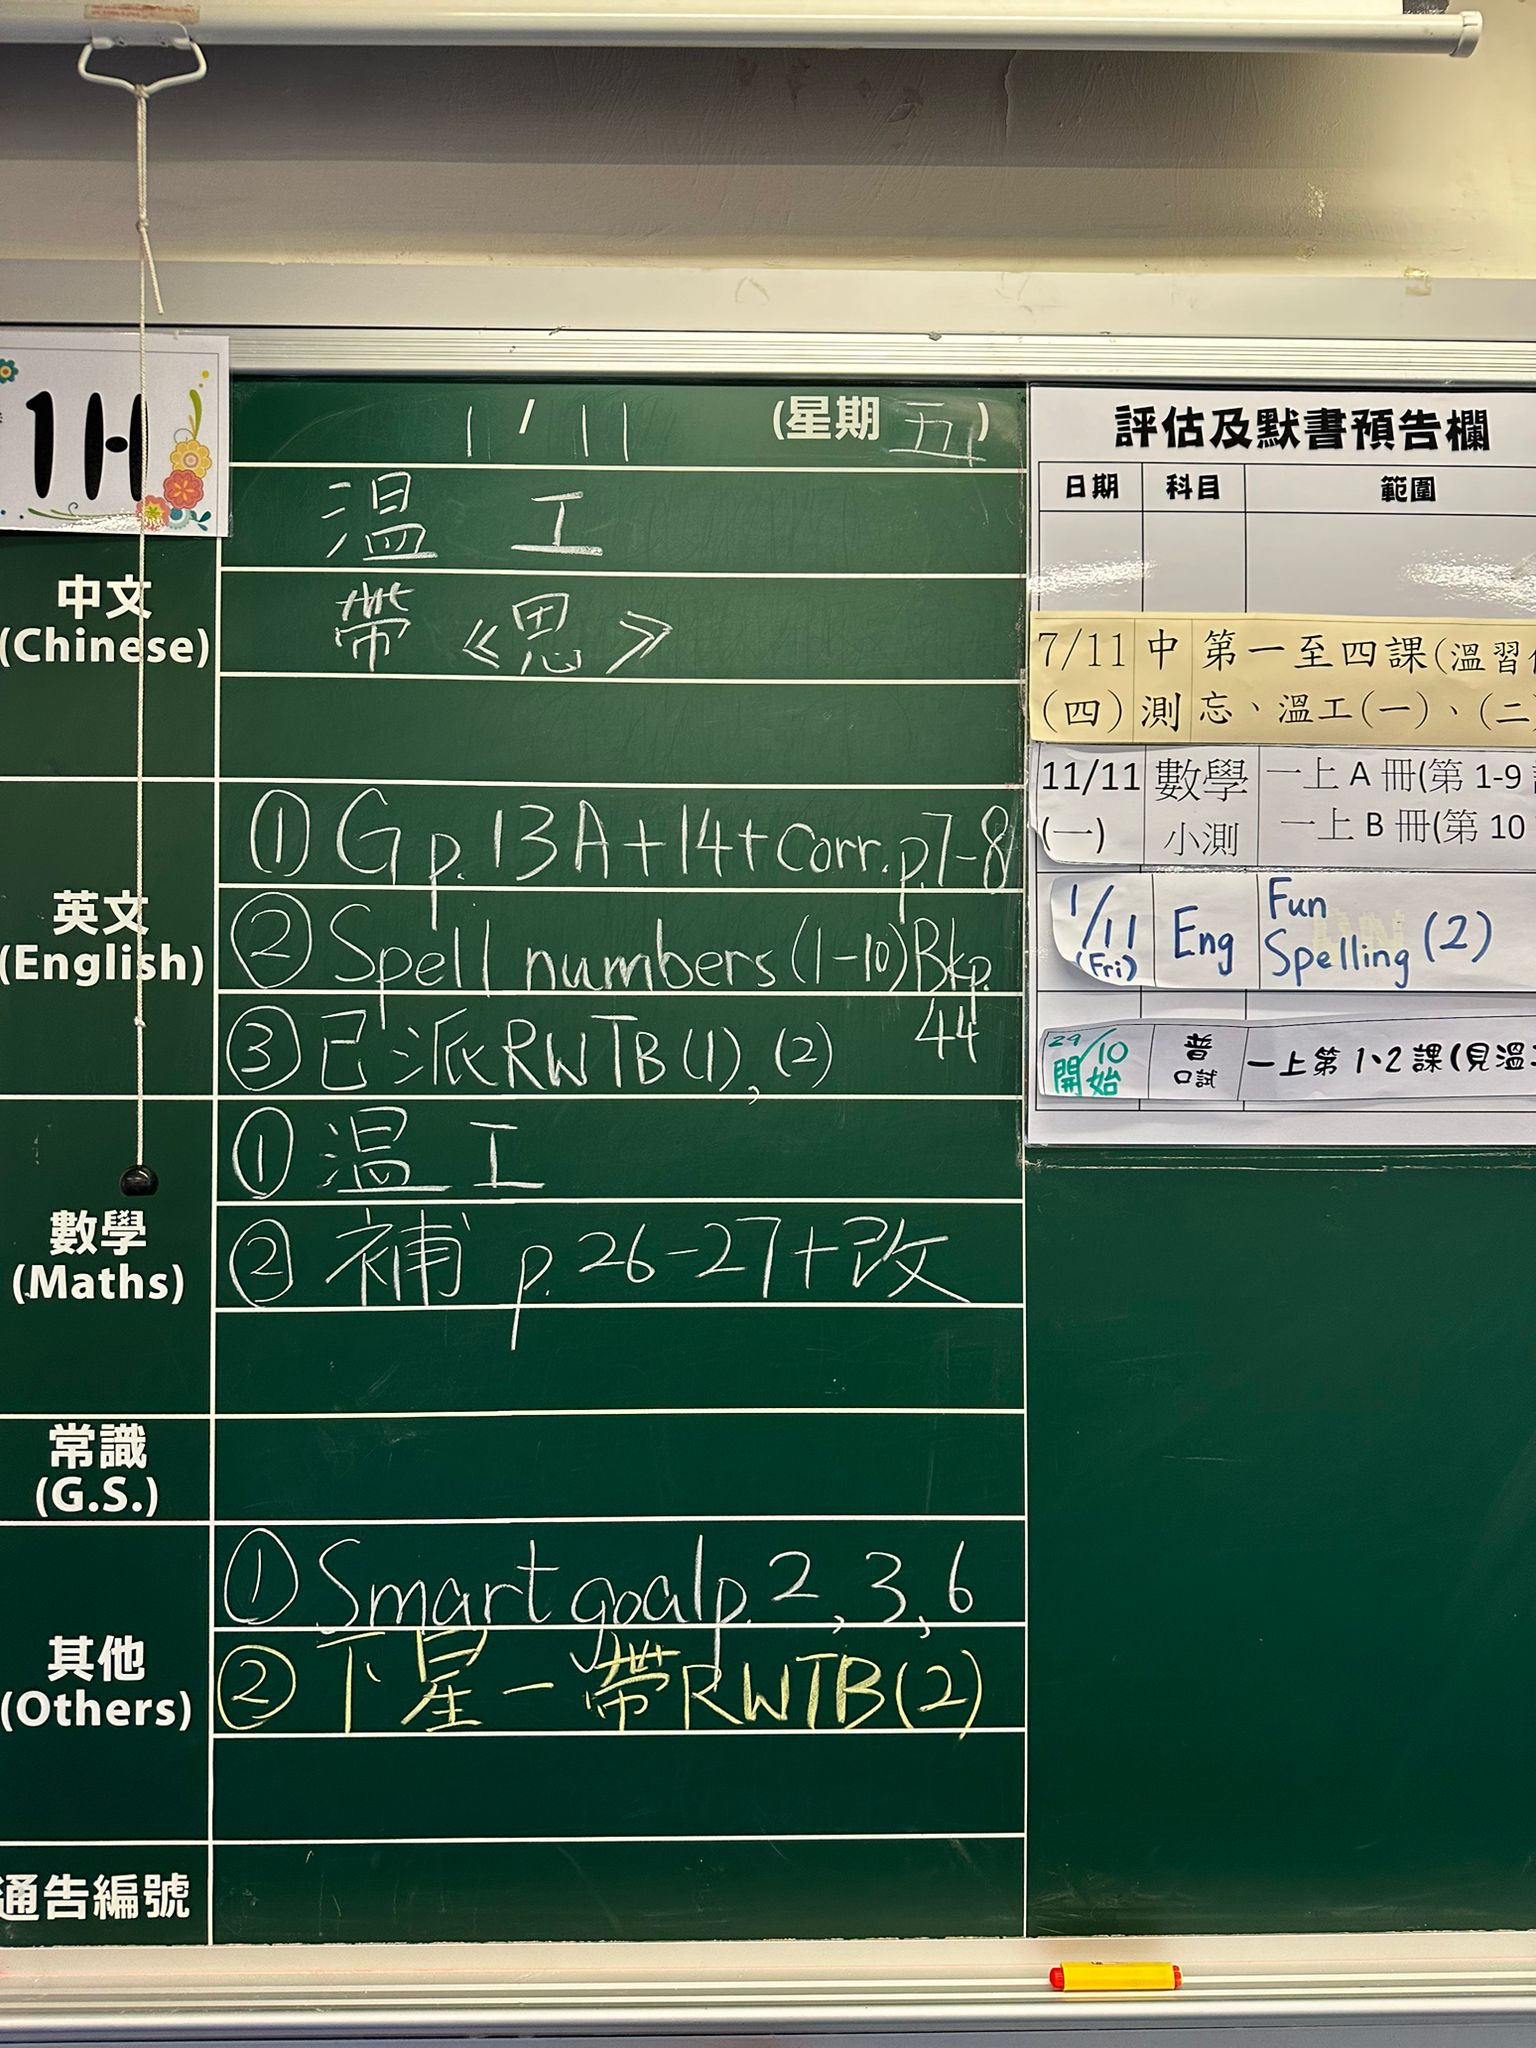 1H
1 / 11 (星期 五)
中文
(Chinese)
溫 工
帶《思》
英文
(English)
① G p. 13A + 14 + corr. p.7-8
② Spell numbers (1-10) Bk p.
44
③ 已派 RWTB (1), (2)
數學
(Maths)
① 溫 工
② 補 p. 26-27 + 改
常識
(G.S.)
其他
(Others)
① Smart goal p. 2, 3, 6
② 下星一帶 RWTB (2)
通告編號
評估及默書預告欄
日期 科目 範圍
7/11 中 第一至四課(溫習
(四) 測 忘、溫工(一)、(二
11/11 數學 一上 A 冊(第 1-9
(一) 小測 一上 B 冊(第 10
1/11 Eng Fun
(Fri) Spelling (2)
29/10 普 一上第 1、2 課(見溫
開始 口試